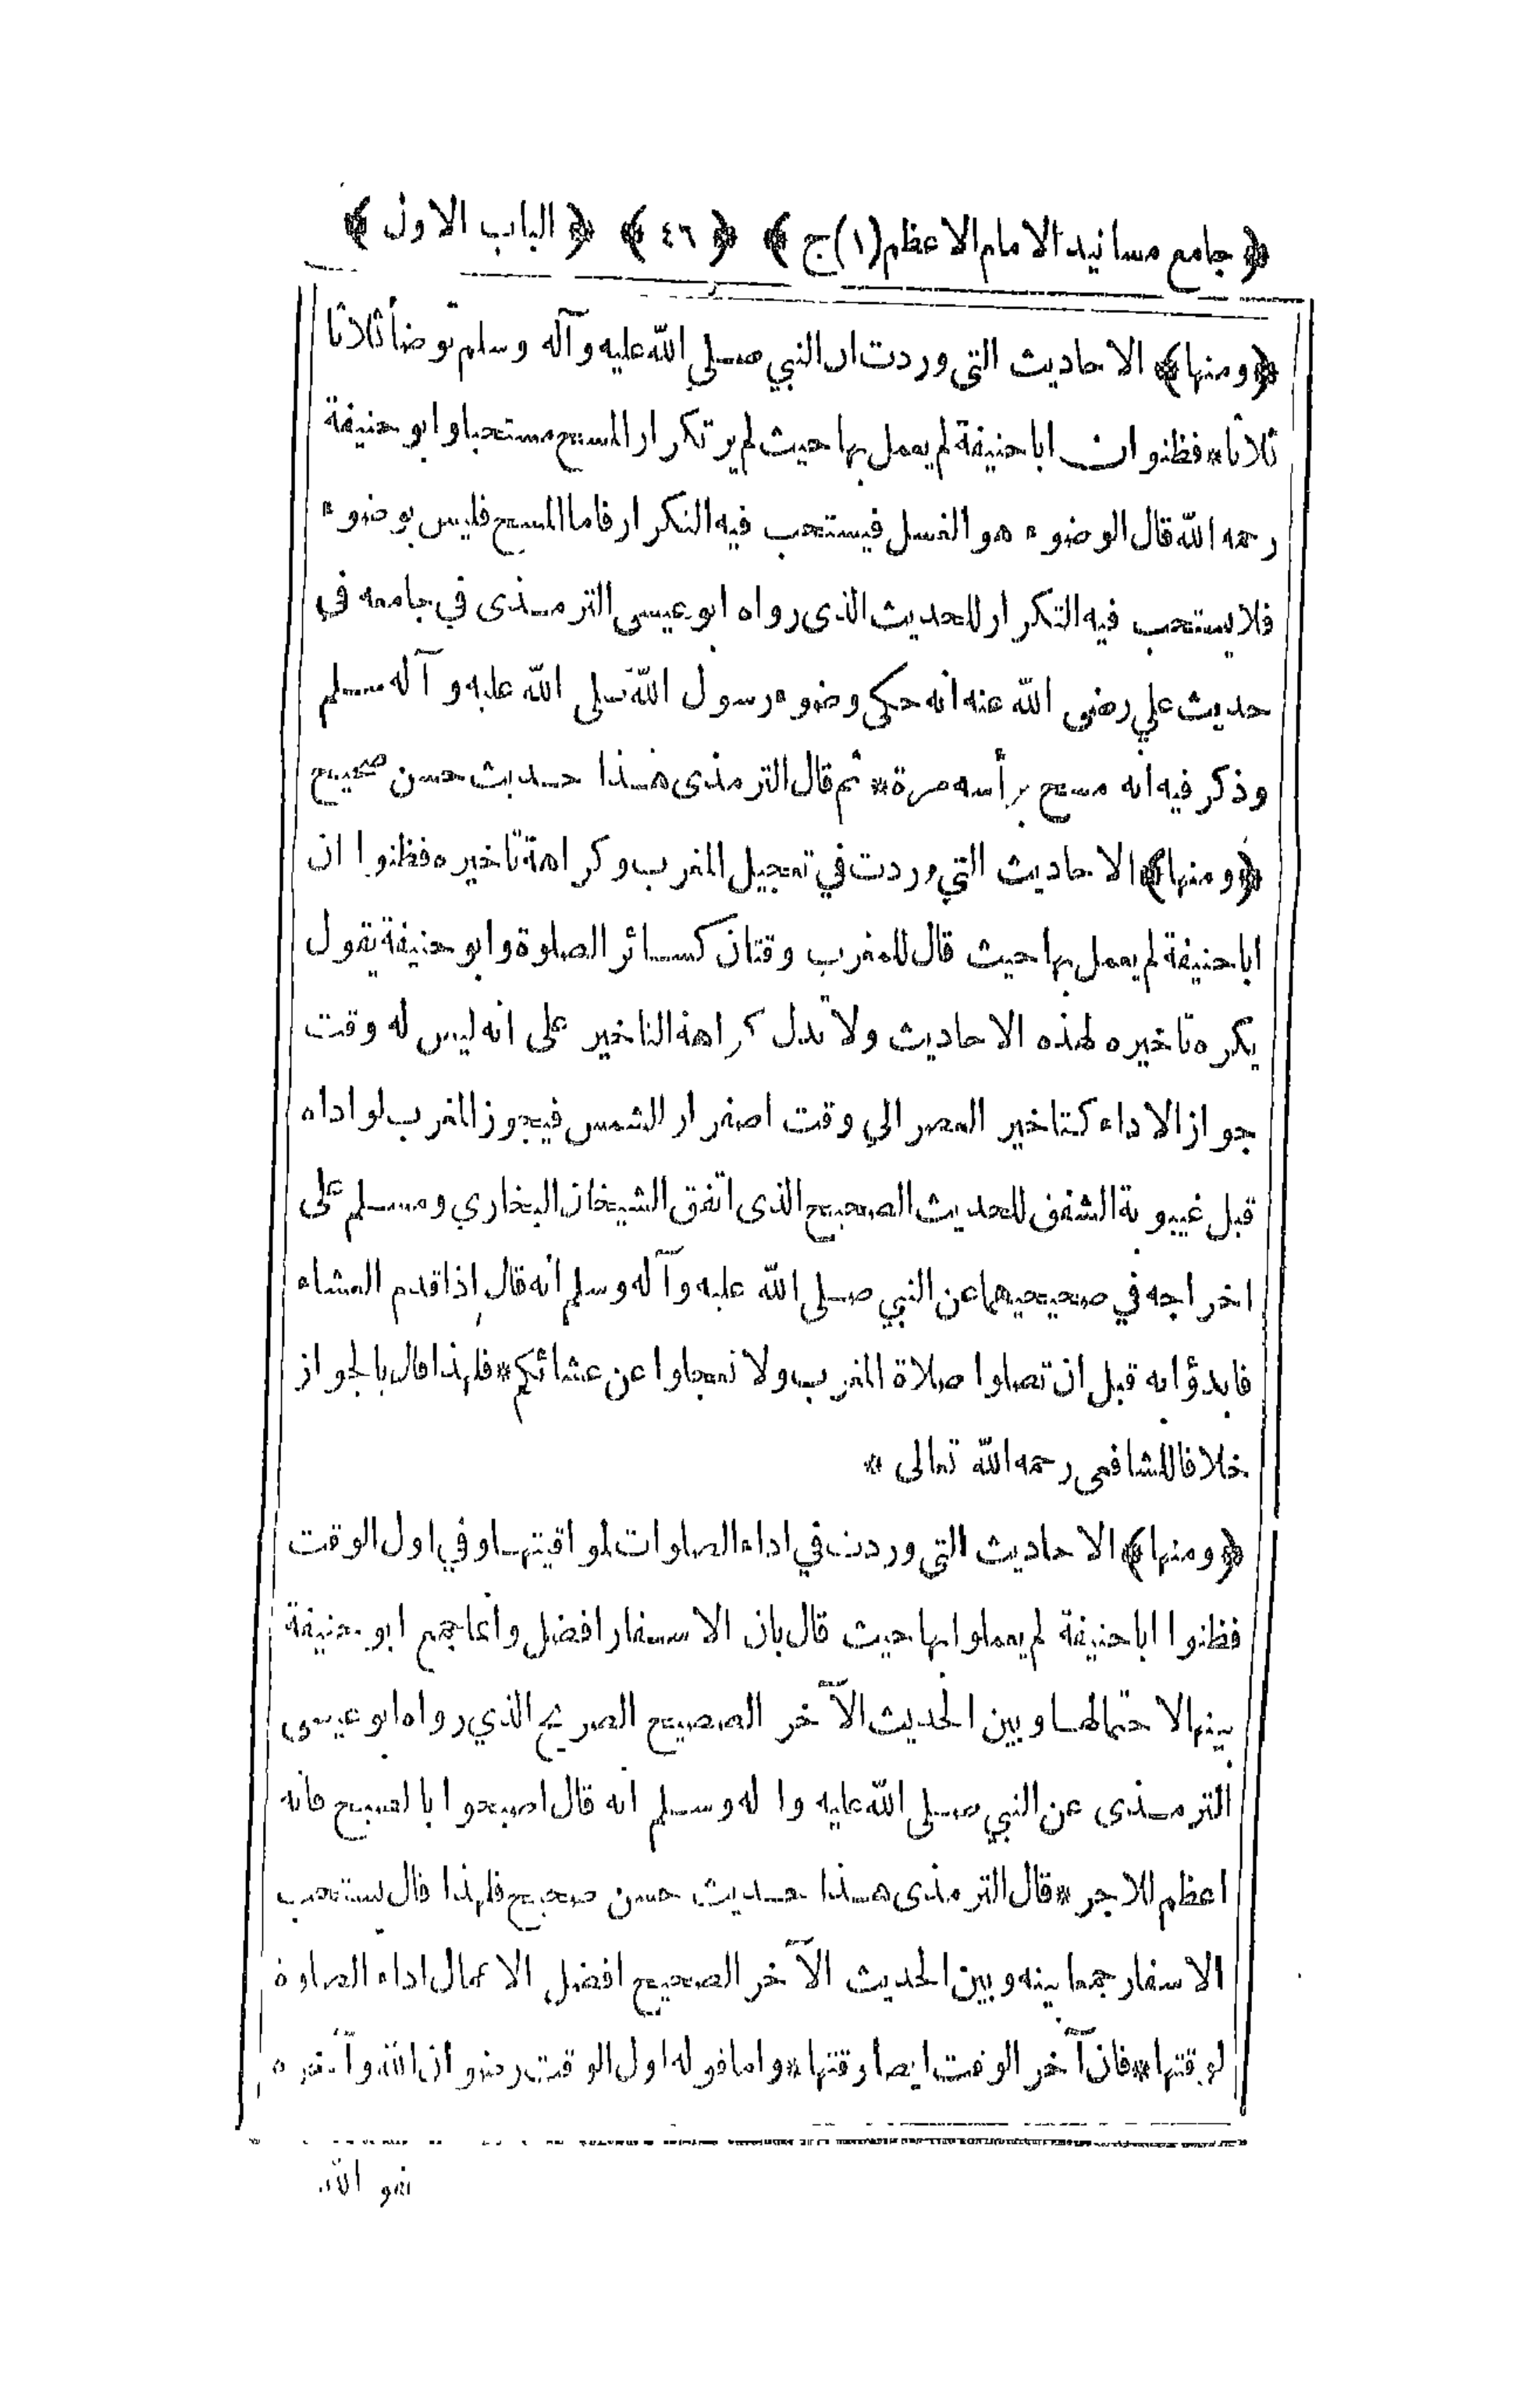 ﴿ جامع مسانيد الامام الاعظم (١) ج ﴾ ﴿ ٤٦ ﴾ ﴿ الباب الاول ﴾
﴿ ومنها ﴾ الاحاديث التي وردت ان النبي صلى الله عليه وآله وسلم توضأ ثلاثا
ثلاثا * فظنوا ان ابا حنيفة لم يعمل بها حيث لم ير تكرار المسح مستحبا وابو حنيفة
رحمه الله قال الوضوء هو الغسل فيستحب فيه التكرار فاما المسح فليس بوضوء
فلا يستحب فيه التكرار للحديث الذى رواه ابو عيسى الترمذى في جامعه في
حديث علي رضى الله عنه انه حكى وضوء رسول الله صلى الله عليه وآله وسلم
وذكر فيه انه مسح برأسه مرة * ثم قال الترمذى هذا حديث حسن صحيح
﴿ ومنها ﴾ الاحاديث التي وردت في تعجيل المغرب وكراهة تاخيره فظنوا ان
ابا حنيفة لم يعمل بها حيث قال للمغرب وقتان كسائر الصلوة وابو حنيفة يقول
يكره تاخيره لهذه الاحاديث ولا تدل كراهة التاخير على انه ليس له وقت
جواز الاداء كتاخير العصر الي وقت اصفرار الشمس فيجوز المغرب لو اداه
قبل غيبوبة الشفق للحديث الصحيح الذى اتفق الشيخان البخاري ومسلم على
اخراجه في صحيحيهما عن النبي صلى الله عليه وآله وسلم انه قال إذا قدم العشاء
فابدؤا به قبل ان تصلوا صلاة المغرب ولا تعجلوا عن عشائكم * فلهذا قال بالجواز
خلافا للشافعى رحمه الله تعالى *
﴿ ومنها ﴾ الاحاديث التي وردت في اداء الصلوات لمواقيتها وفي اول الوقت
فظنوا ابا حنيفة لم يعملوا بها حيث قال بان الاسفار افضل وانما جمع ابو حنيفة
بينها لاحتمالها وبين الحديث الآخر الصحيح الصريح الذي رواه ابو عيسى
الترمذى عن النبي صلى الله عليه واله وسلم انه قال اصبحوا بالصبح فانه
اعظم للاجر * قال الترمذى هذا حديث حسن صحيح فلهذا قال يستحب
الاسفار جمعا بينه وبين الحديث الآخر الصحيح افضل الاعمال اداء الصلوة
لوقتها * فان آخر الوقت ايضا وقتها * واما قوله اول الوقت رضوان الله وآخره
عفو الله